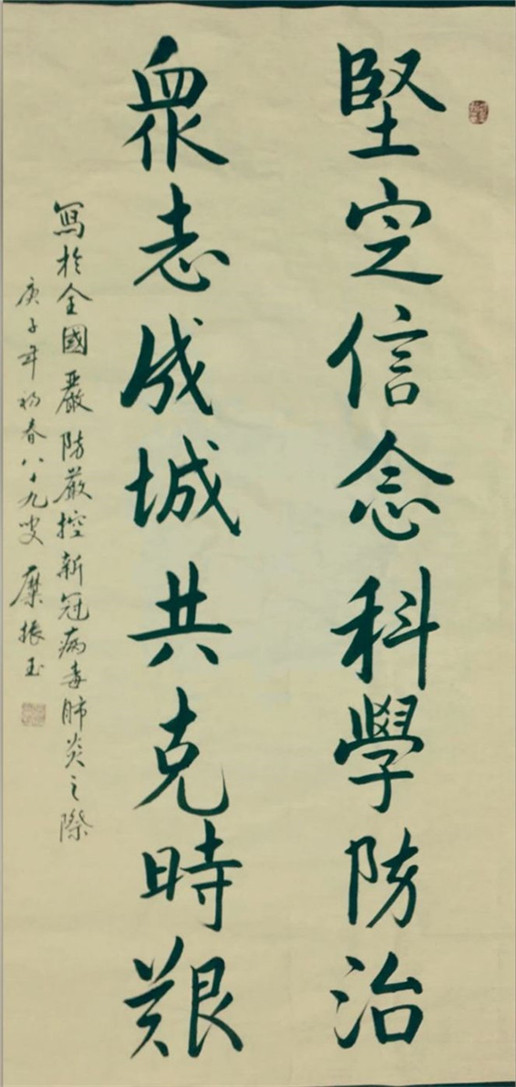 堅定信念科學防治
衆志成城共克時艱
寫於全國嚴防嚴控新冠病毒肺炎之際
庚子年初春八十九叟糜振玉